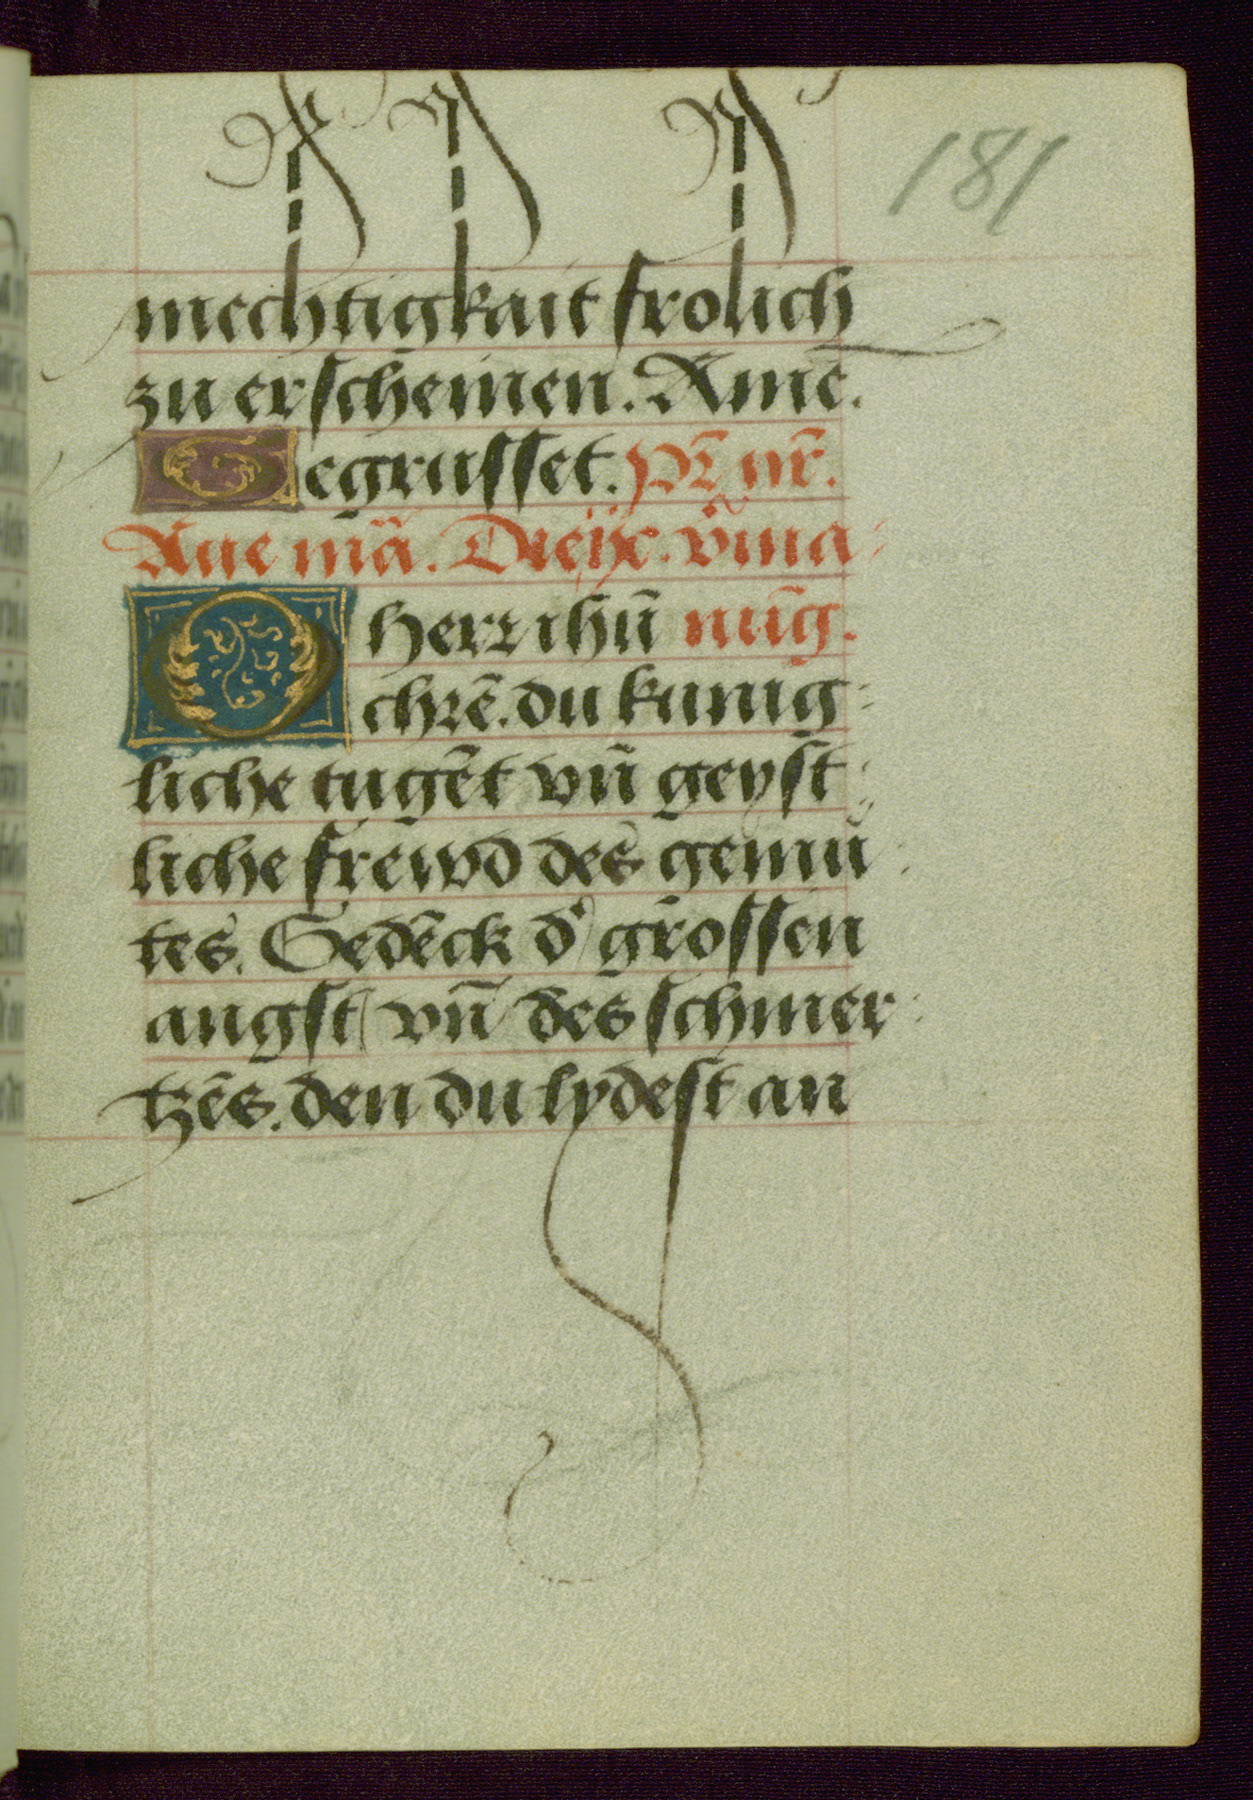 181
mechtigkait frolich
zu erscheinen. Amē.
Gegrusset. Pr̄ nr̄.
Aue mā. Die ix. v̄ma
O herr ihū nūg.
chrē. du kunig
liche tugēt vn̄ geyst
liche frewd des gemu
tes. Gedēck d' grossen
angst vn̄ des schmer
tzēs. den du lydest an